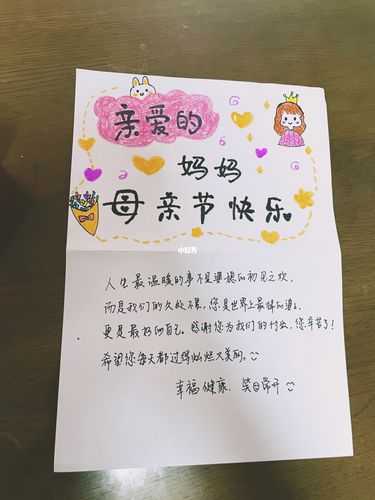 亲爱的
妈妈
母亲节快乐
小红书
人生最温暖的事不是婆媳的初见之欢,
而是我们的久处不厌,您是世界上最好的婆婆,
更是最好的自己。感谢您为我们的付出,您辛苦了!
希望您每天都过得灿烂又美丽。
幸福 健康、笑口常开